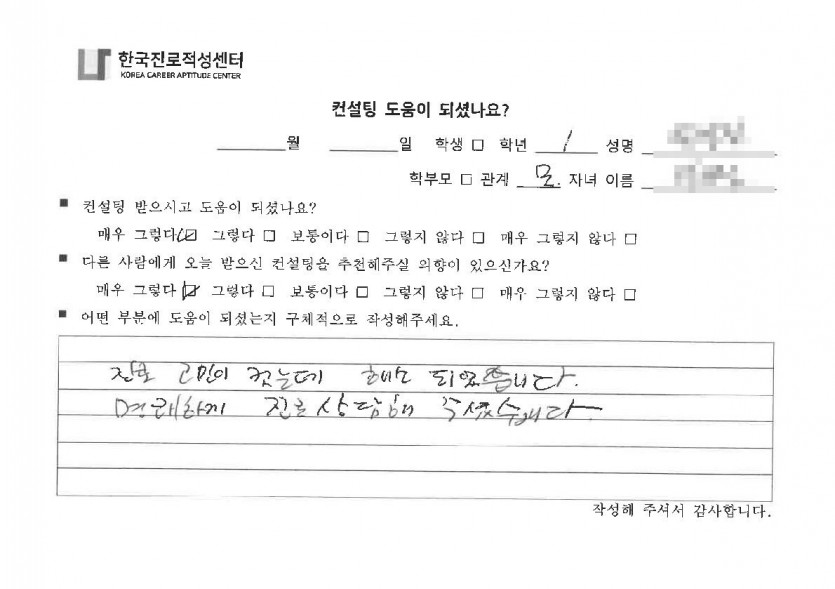 한국진로적성센터
KOREA CAREER APTITUDE CENTER
컨설팅 도움이 되셨나요?
______월 ______일 학생 □ 학년 1 성명
학부모 □ 관계 모. 자녀 이름
■ 컨설팅 받으시고 도움이 되셨나요?
매우 그렇다 ☑ 그렇다 □ 보통이다 □ 그렇지 않다 □ 매우 그렇지 않다 □
■ 다른 사람에게 오늘 받으신 컨설팅을 추천해주실 의향이 있으신가요?
매우 그렇다 ☑ 그렇다 □ 보통이다 □ 그렇지 않다 □ 매우 그렇지 않다 □
■ 어떤 부분에 도움이 되셨는지 구체적으로 작성해주세요.
진로 고민이 컸는데 해소 되었습니다.
명쾌하게 진로상담해 주셨습니다
작성해 주셔서 감사합니다.